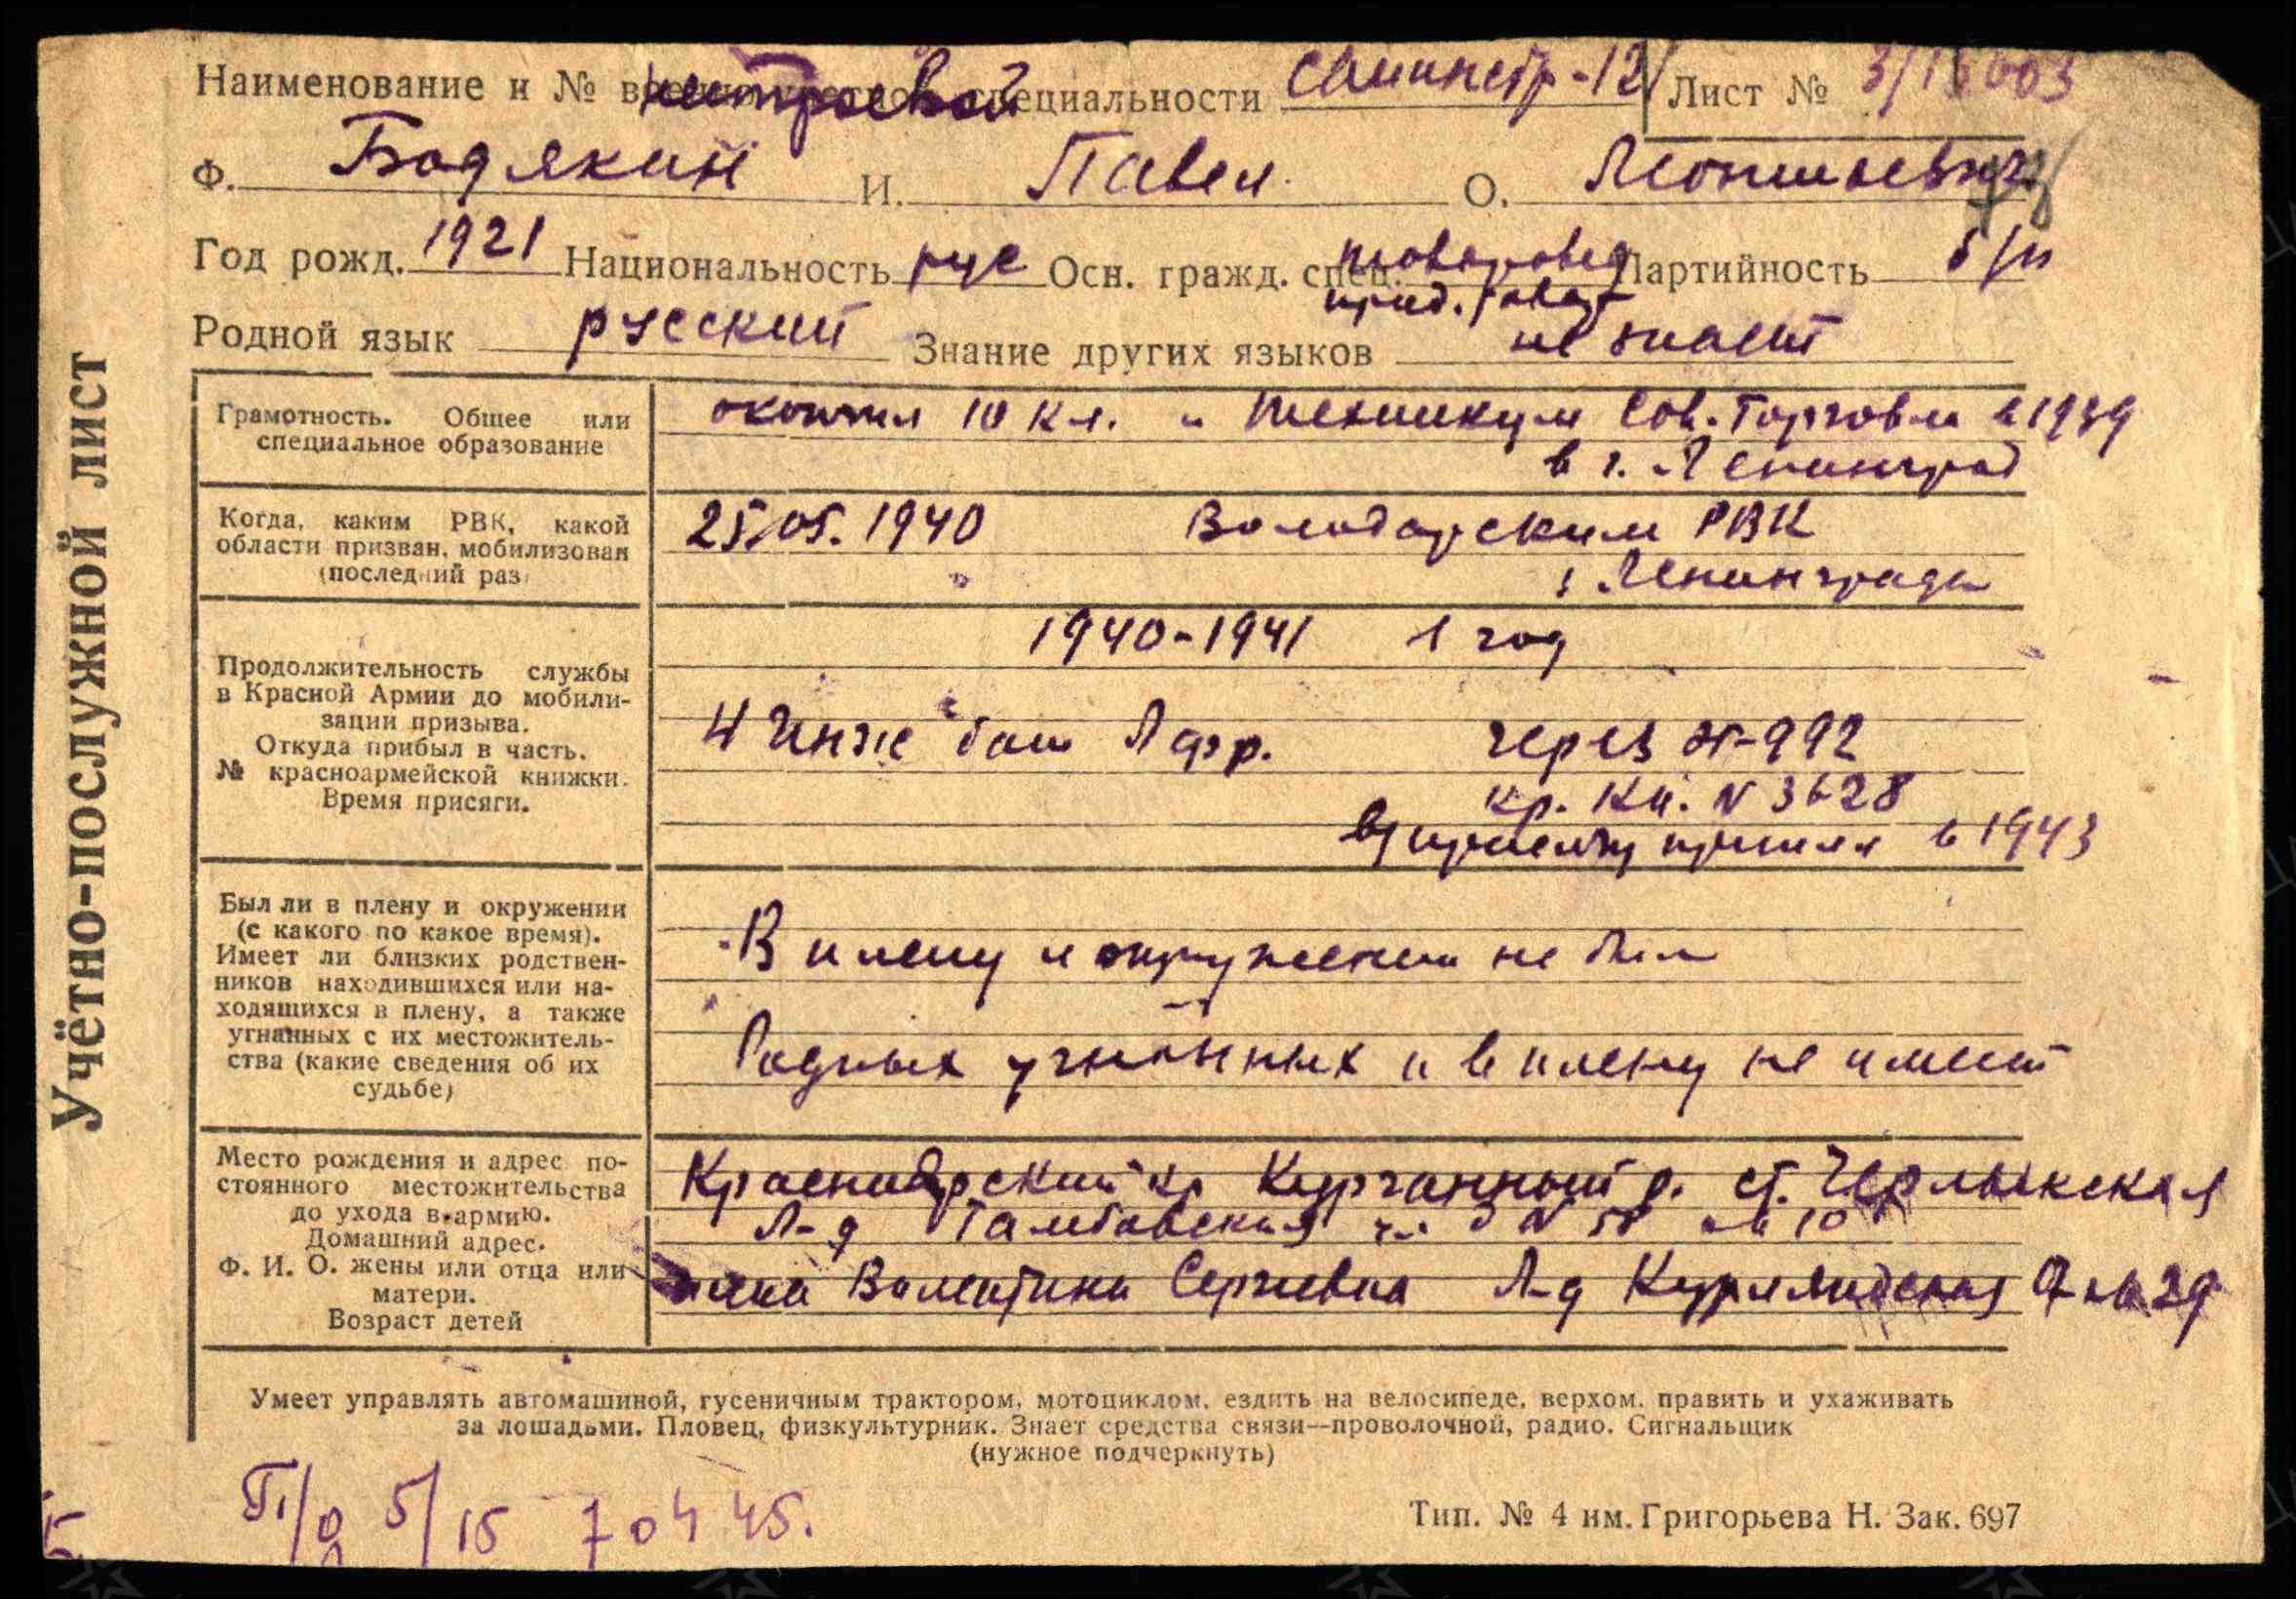 Учётно-послужной лист
Наименование и № нестроевой специальности санинстр-12 Лист №
Ф. Бодякин И. Павел О. Леонтьевич
Год рожд. 1921 Национальность рус Осн. гражд. спец. товаровед Партийность б/п
прод. товар
Родной язык русский Знание других языков не знает
Грамотность. Общее или
специальное образование
окончил 10 кл. и техникум Сов. Торговли в 1939
в г. Ленинград
Когда, каким РВК, какой
области призван, мобилизован
(последний раз)
25/05. 1940 Володарским РВК
" г Ленинграда
Продолжительность службы
в Красной Армии до мобили-
зации призыва.
Откуда прибыл в часть.
№ красноармейской книжки.
Время присяги.
1940-1941 1 год
4 Инже бат Л фр. через эг-992
кр. Кн. N 3628
присягу принял в 1943
Был ли в плену и окружении
(с какого по какое время).
Имеет ли близких родствен-
ников находившихся или на-
ходящихся в плену, а также
угнанных с их местожитель-
ства (какие сведения об их
судьбе)
В плену и окружении не был
Родных угнанных и в плену не имеет
Место рождения и адрес по-
стоянного местожительства
до ухода в армию.
Домашний адрес.
Ф. И. О. жены или отца или
матери.
Возраст детей
Краснодарский кр Курганный р. ст. Чермлыкская
Л-д Тамбовская ул. д N 58 кв 10
жена Валентина Сергиевна Л-д Курляндская 9 кв 29
Умеет управлять автомашиной, гусеничным трактором, мотоциклом, ездить на велосипеде, верхом, править и ухаживать
за лошадьми. Пловец, физкультурник. Знает средства связи—проволочной, радио. Сигнальщик
(нужное подчеркнуть)
П/о 5/15 7 04 45.
Тип. № 4 им. Григорьева Н. Зак. 697